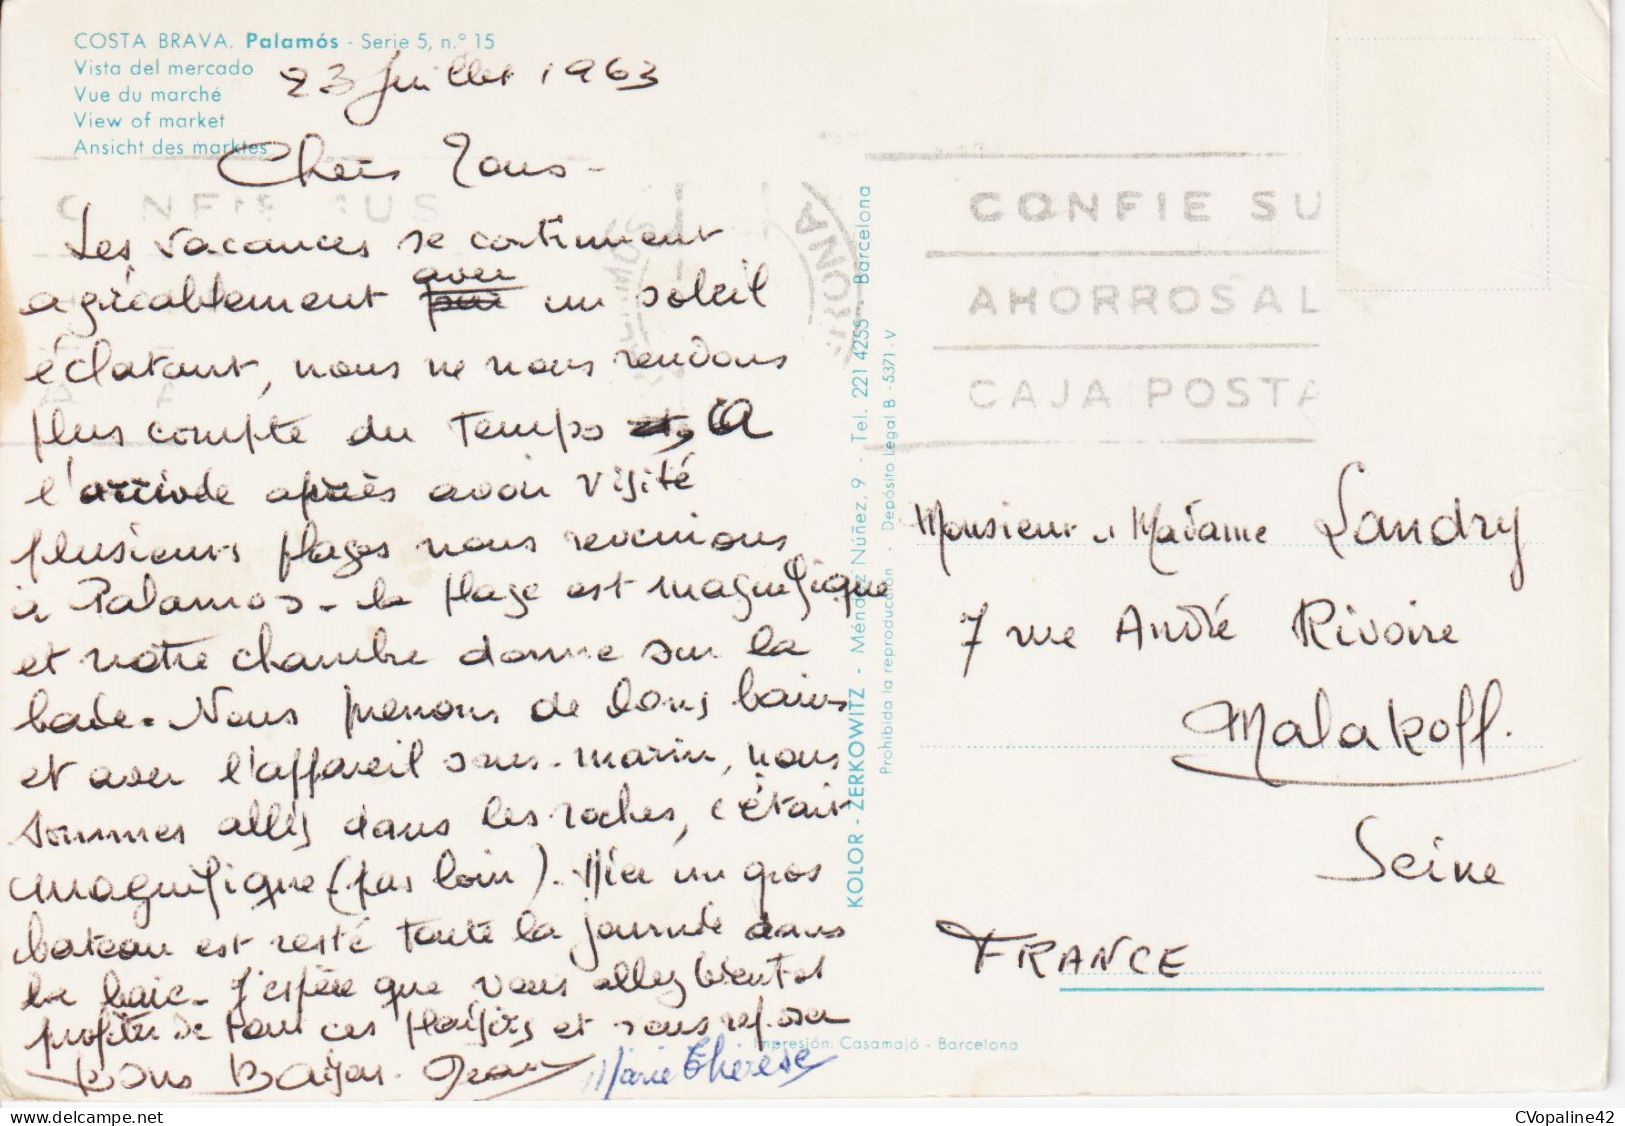 COSTA BRAVA. Palamós - Serie 5, n.º 15
Vista del mercado
Vue du marché
View of market
Ansicht des marktes
23 Juillet 1963
Chers Tous -
Les vacances se continuent
agréablement avec un soleil
éclatant, nous ne nous rendons
plus compte du temps A
l'arrivée après avoir visité
plusieurs plages nous revenions
à Palamos - la plage est magnifique
et notre chambre donne sur la
baie. Nous prenons de longs bains
et avec l'appareil sous-marin, nous
sommes allés dans les roches, c'était
magnifique (pas loin). Hier un gros
bateau est resté toute la journée dans
la baie. J'espère que vous allez bientôt
profiter de tous ces plaisirs et vous reposer
Bons Baisers. Jean
Marie Thérèse
KOLOR - ZERKOWITZ - Méndez Núñez, 9 - Tel. 221 4255 - Barcelona
Prohibida la reproducción - Depósito Legal B - 5371 - V
CONFIE SU
AHORROS AL
CAJA POSTA
Monsieur et Madame Landry
7 rue André Rivoire
Malakoff.
Seine
FRANCE
Impresión: Casamajó - Barcelona
CVopaline42